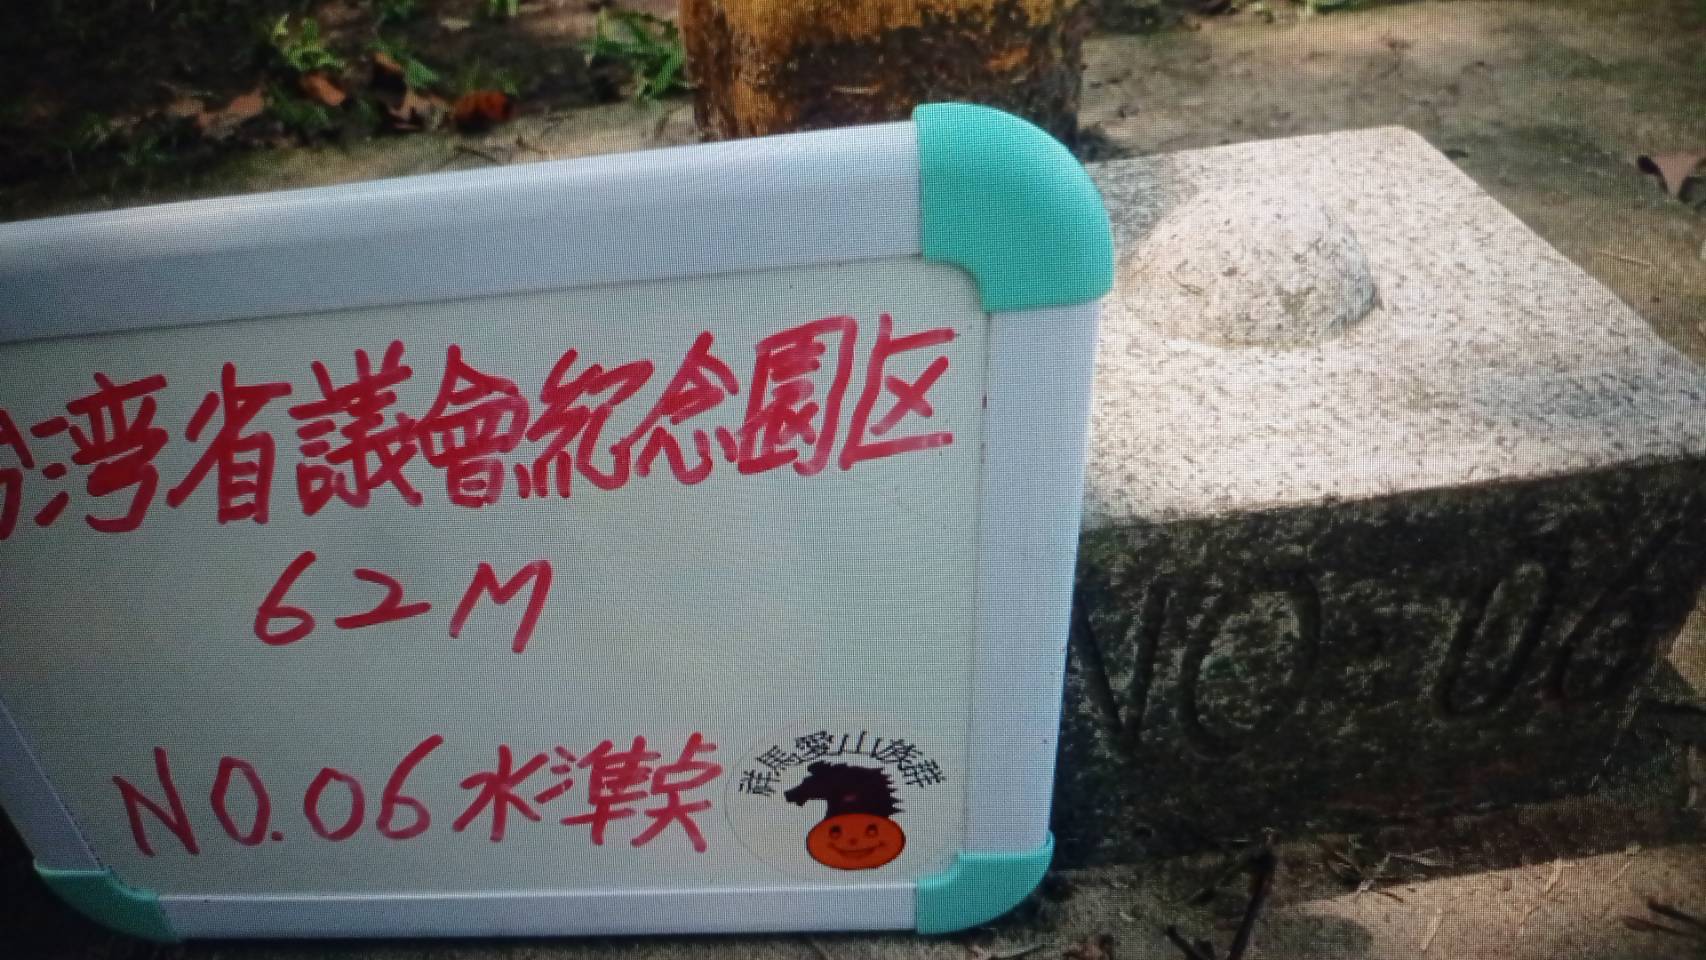 台湾省議會紀念園区
62M
NO.06水準点
群馬愛山族群
NO.06